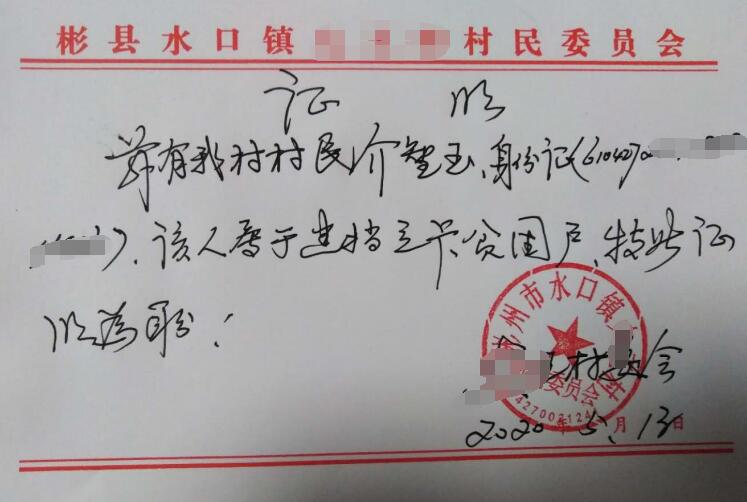 彬县水口镇 村民委员会
证 明
兹有我村村民介智玉、身份证(610427
)、该人属于建档立卡贫困户,特此证
明为盼!
彬州市水口镇 村 委员会
村委会
2020年5月13日